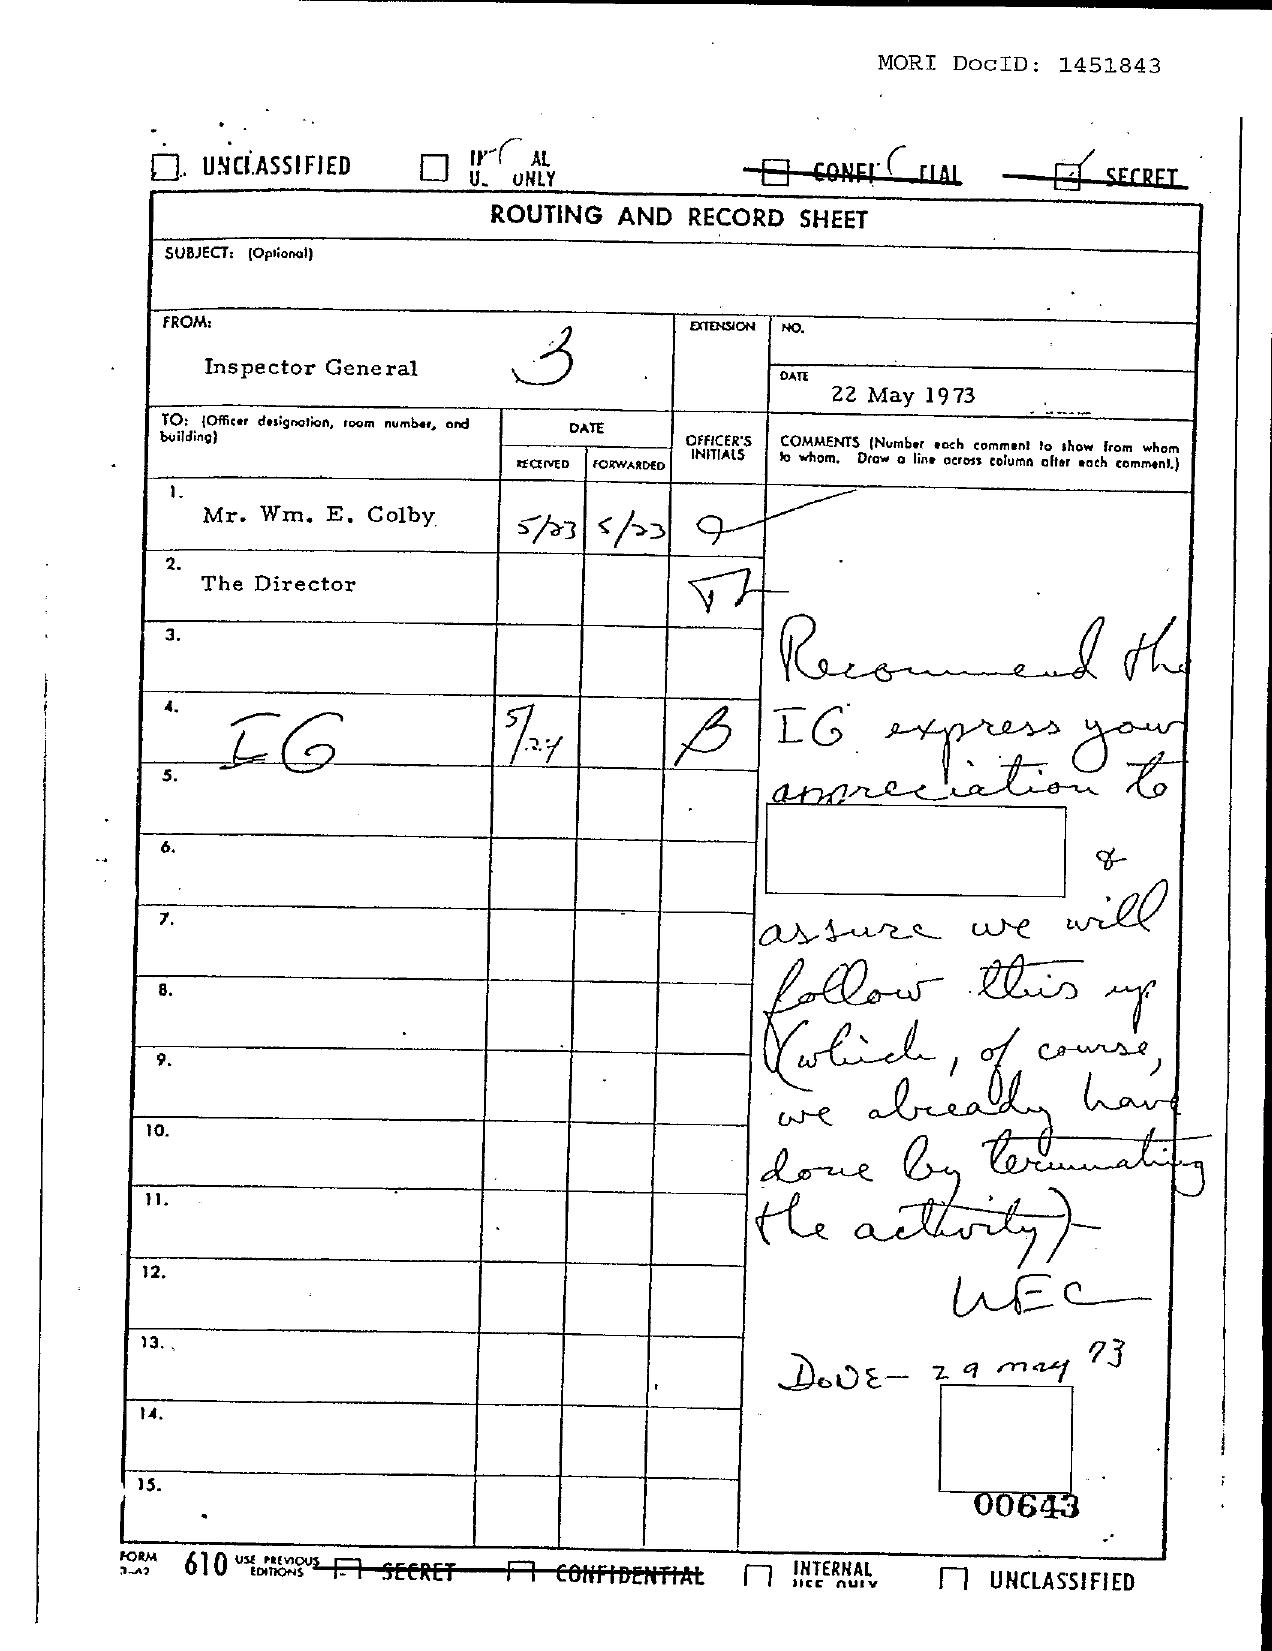 MORI DocID: 1451843
UNCLASSIFIED AL CONFI TIAL SECRET
U. ONLY
ROUTING AND RECORD SHEET
SUBJECT: (Optional)
FROM:
Inspector General
3
EXTENSION
NO.
DATE
22 May 1973
TO: (Officer designation, room number, and
building)
DATE
RECEIVED
FORWARDED
OFFICER'S
INITIALS
COMMENTS (Number each comment to show from whom
to whom. Draw a line across column after each comment.)
1.
Mr. Wm. E. Colby 5/23 5/23
2.
The Director
3.
4.
IG 5/24 B
5.
6.
7.
8.
9.
10.
11.
12.
13.
14.
15.
Recommend the
IG express your
appreciation to
&
assure we will
follow this up
(which, of course,
we already have
done by terminating
the activity)-
WEC
DONE- 29 may 73
00643
FORM
3-62
610 USE PREVIOUS
EDITIONS
SECRET CONFIDENTIAL INTERNAL
USE ONLY
UNCLASSIFIED